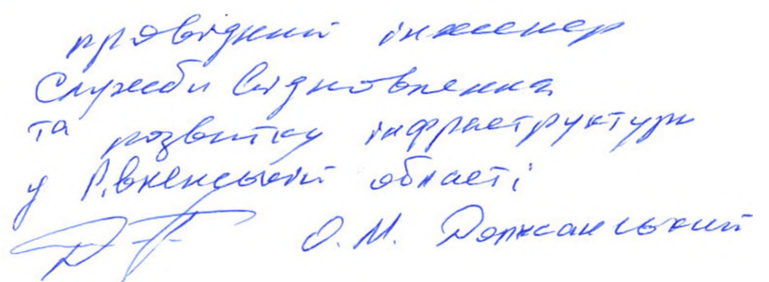 провідний інженер
Служби відновлення
та розвитку інфраструктури
у Рівненській області
О.М. Должанський